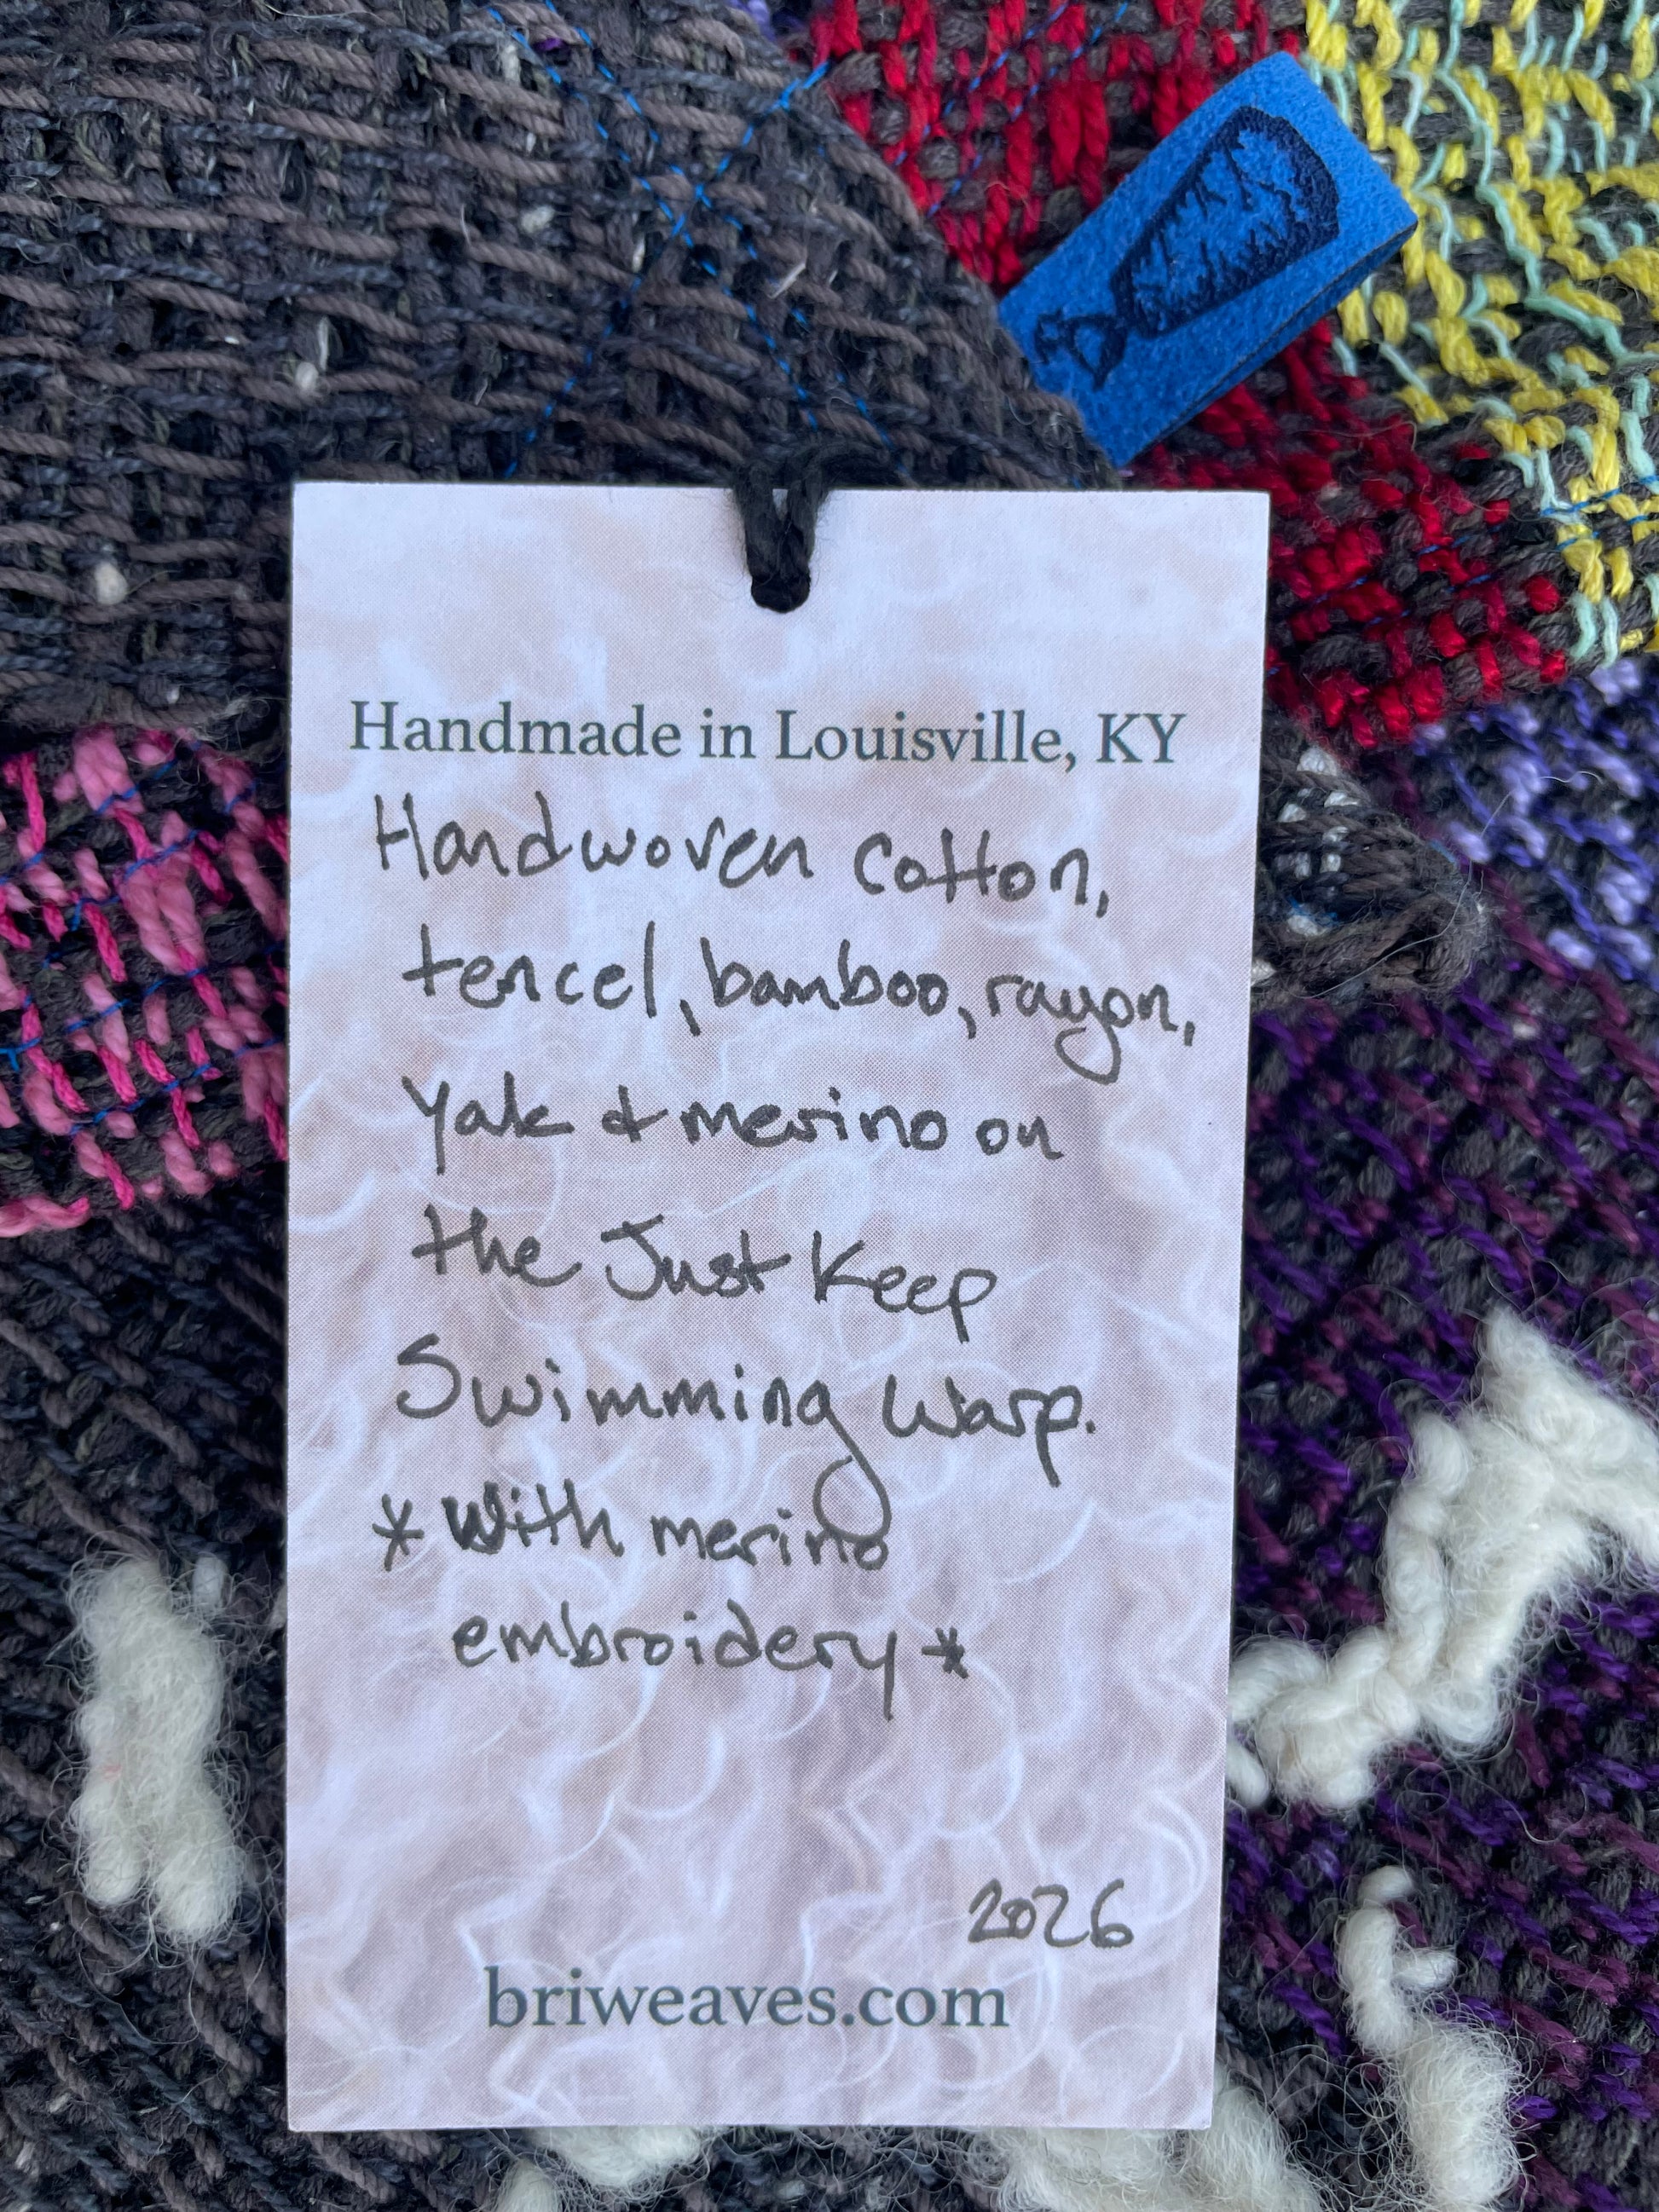 Handmade in Louisville, KY
Handwoven cotton,
tencel, bamboo, rayon,
yak & merino on
the Just Keep
Swimming Warp.
* With merino
embroidery *
2026
briweaves.com